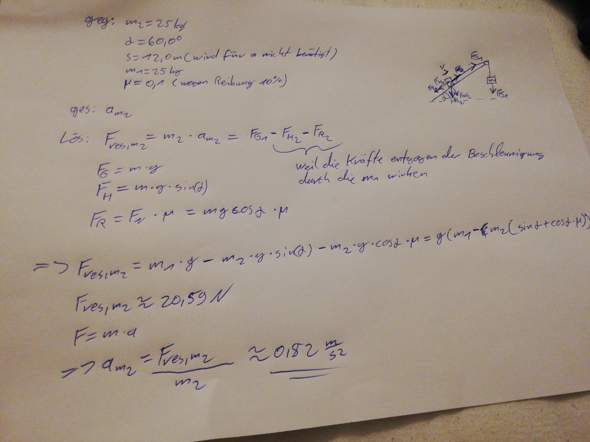 geg: m₂ = 25kg
α = 60,0°
s = 12,0m (wird für a nicht benötigt)
m₁ = 25kg
μ = 0,1 (wegen Reibung 10%)
ges: a_m₂
Lös: F_res,m₂ = m₂ · a_m₂ = F_G₁ - F_H₂ - F_R₂
weil die Kräfte entgegen der Beschleunigung
durch die m₁ wirken
F_G = m · g
F_H = m · g · sin(α)
F_R = F_N · μ = mg cosα · μ
=> F_res,m₂ = m₁ · g - m₂ · g · sin(α) - m₂ · g · cosα · μ = g(m₁ - m₂(sinα + cosα · μ))
F_res,m₂ ≈ 20,59 N
F = m · a
=> a_m₂ = F_res,m₂ / m₂ ≈ 0,82 m/s²